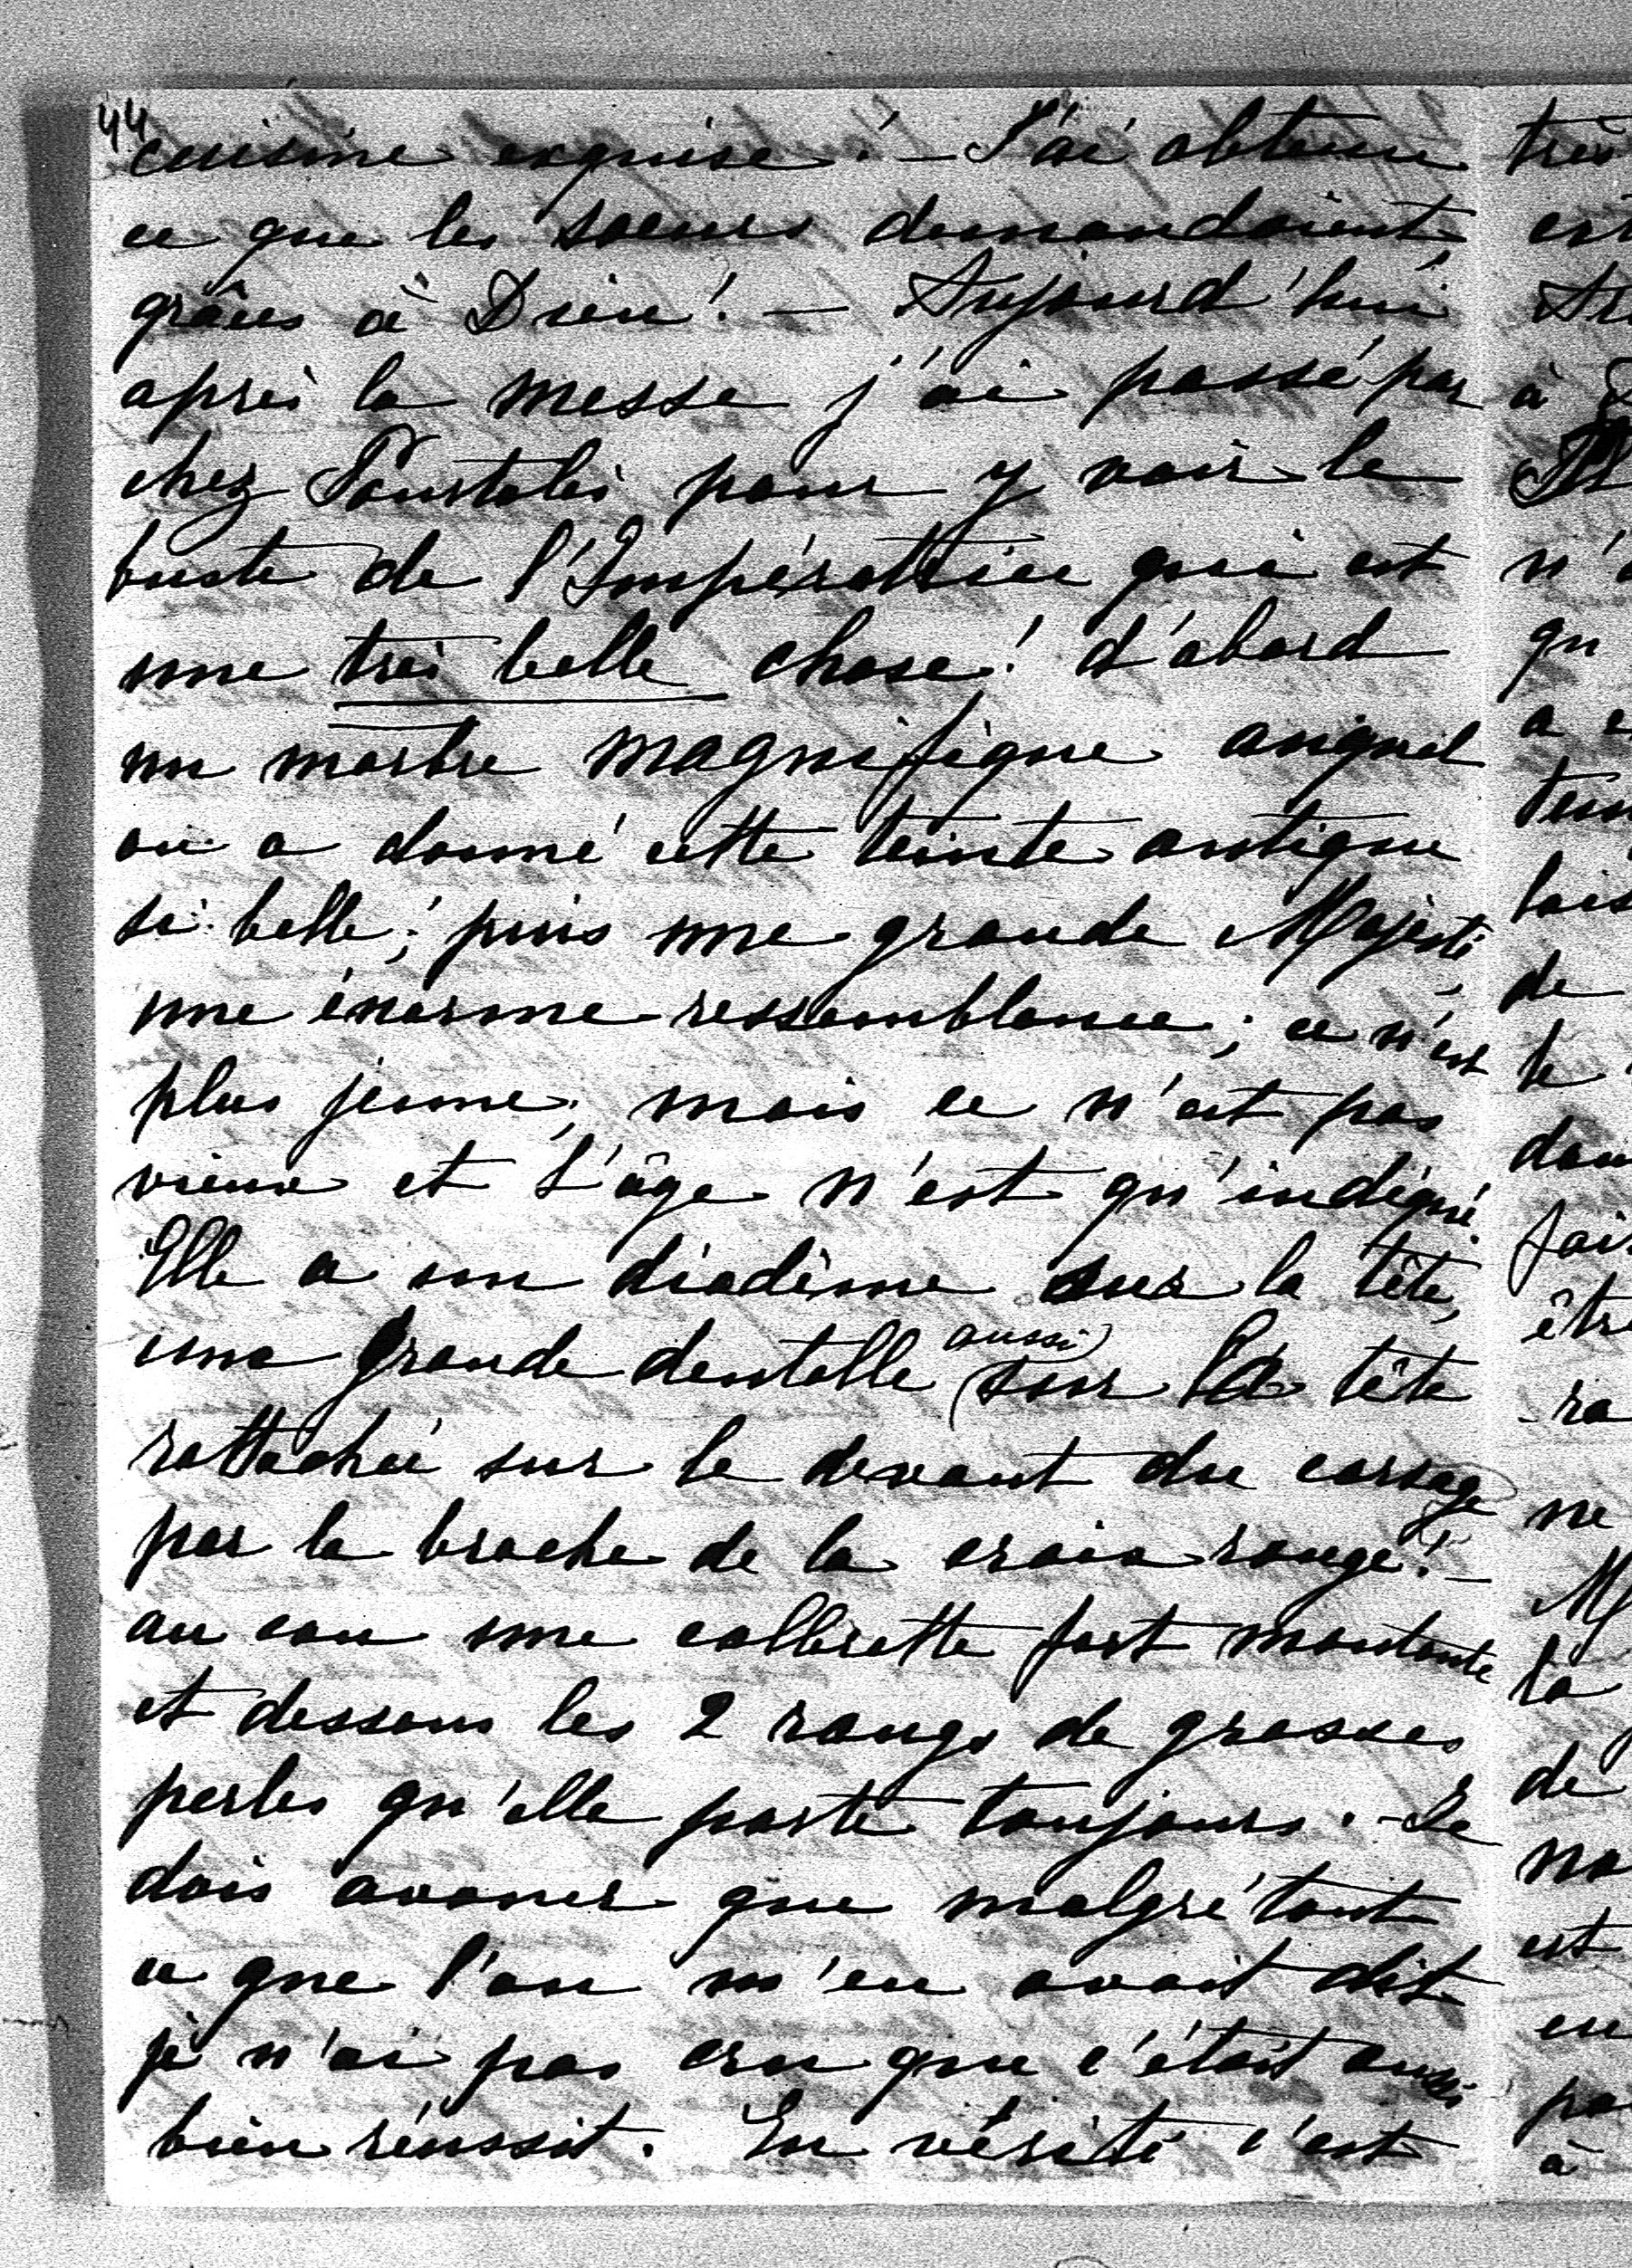 44
cuisine exquise! – J'ai obtenu
ce que les soeurs demandaient,
grâces à Dieu! – Aujourd'hui
après la messe j'ai passé par
chez pour y voir le
buste de l'Impératrice qui est
une très belle chose! d'abord
un marbre magnifique auquel
on a donné cette teinte antique
si belle; puis une grande Majesté,
une énorme ressemblance; ce n'est
plus jeune, mais ce n'est pas
vieux et l'âge n'est qu'indiqué
Elle a un diadème sur la tête,
une grande dentelle aussi sur la tête
rattachée sur le devant du corsage
par la broche de la croix rouge! –
au cou une collerette fort montante
et dessous les 2 rangs de grosses
perles qu'elle porte toujours. – Je
dois avouer que malgré tout
ce que l'on m'en avait dit
je n'ai pas cru que c'était aussi
bien réussit. En vérité c'est
très
est
à
n'
qu
a
de
le
fai
êtr
-ra
ne
M
la
de
no
est
en
pa
à